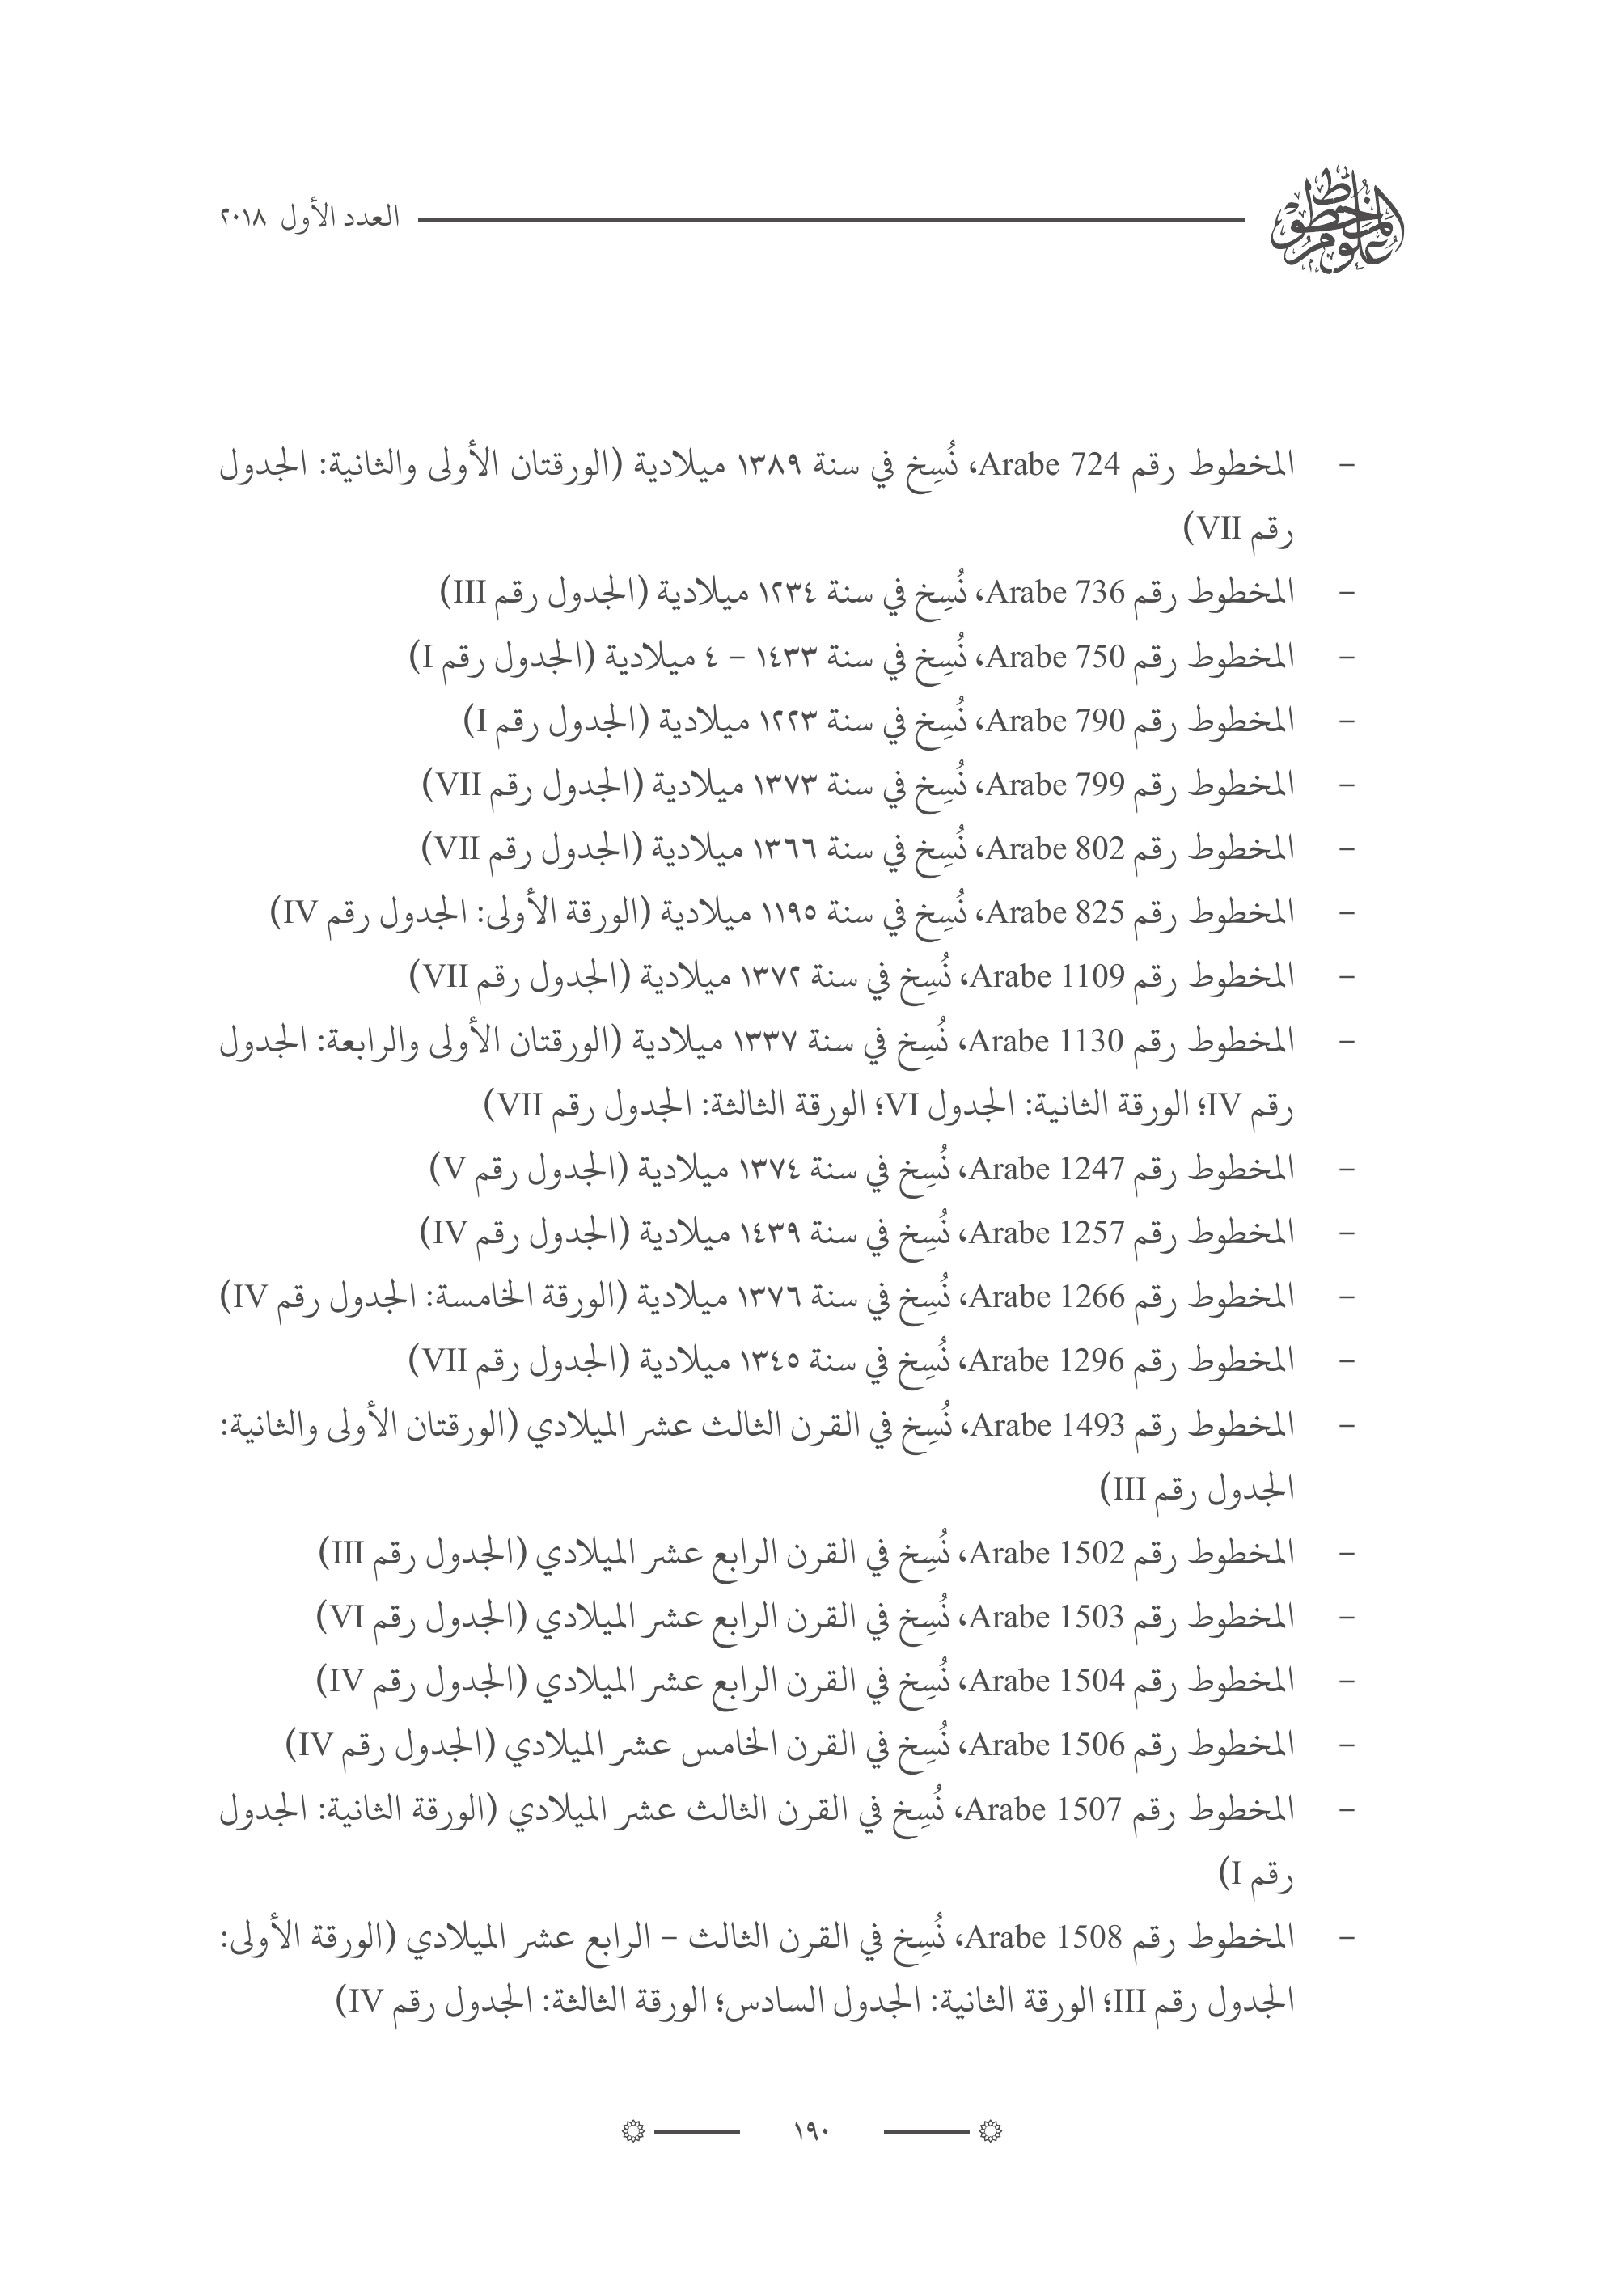 علوم المخطوط
العدد الأول ٢٠١٨
- المخطوط رقم Arabe 724، نُسِخ في سنة ١٣٨٩ ميلادية (الورقتان الأولى والثانية: الجدول
رقم VII)
- المخطوط رقم Arabe 736، نُسِخ في سنة ١٢٣٤ ميلادية (الجدول رقم III)
- المخطوط رقم Arabe 750، نُسِخ في سنة ١٤٣٣ – ٤ ميلادية (الجدول رقم I)
- المخطوط رقم Arabe 790، نُسِخ في سنة ١٢٢٣ ميلادية (الجدول رقم I)
- المخطوط رقم Arabe 799، نُسِخ في سنة ١٣٧٣ ميلادية (الجدول رقم VII)
- المخطوط رقم Arabe 802، نُسِخ في سنة ١٣٦٦ ميلادية (الجدول رقم VII)
- المخطوط رقم Arabe 825، نُسِخ في سنة ١١٩٥ ميلادية (الورقة الأولى: الجدول رقم IV)
- المخطوط رقم Arabe 1109، نُسِخ في سنة ١٣٧٢ ميلادية (الجدول رقم VII)
- المخطوط رقم Arabe 1130، نُسِخ في سنة ١٣٣٧ ميلادية (الورقتان الأولى والرابعة: الجدول
رقم IV؛ الورقة الثانية: الجدول VI؛ الورقة الثالثة: الجدول رقم VII)
- المخطوط رقم Arabe 1247، نُسِخ في سنة ١٣٧٤ ميلادية (الجدول رقم V)
- المخطوط رقم Arabe 1257، نُسِخ في سنة ١٤٣٩ ميلادية (الجدول رقم IV)
- المخطوط رقم Arabe 1266، نُسِخ في سنة ١٣٧٦ ميلادية (الورقة الخامسة: الجدول رقم IV)
- المخطوط رقم Arabe 1296، نُسِخ في سنة ١٣٤٥ ميلادية (الجدول رقم VII)
- المخطوط رقم Arabe 1493، نُسِخ في القرن الثالث عشر الميلادي (الورقتان الأولى والثانية:
الجدول رقم III)
- المخطوط رقم Arabe 1502، نُسِخ في القرن الرابع عشر الميلادي (الجدول رقم III)
- المخطوط رقم Arabe 1503، نُسِخ في القرن الرابع عشر الميلادي (الجدول رقم VI)
- المخطوط رقم Arabe 1504، نُسِخ في القرن الرابع عشر الميلادي (الجدول رقم IV)
- المخطوط رقم Arabe 1506، نُسِخ في القرن الخامس عشر الميلادي (الجدول رقم IV)
- المخطوط رقم Arabe 1507، نُسِخ في القرن الثالث عشر الميلادي (الورقة الثانية: الجدول
رقم I)
- المخطوط رقم Arabe 1508، نُسِخ في القرن الثالث – الرابع عشر الميلادي (الورقة الأولى:
الجدول رقم III؛ الورقة الثانية: الجدول السادس؛ الورقة الثالثة: الجدول رقم IV)
١٩٠